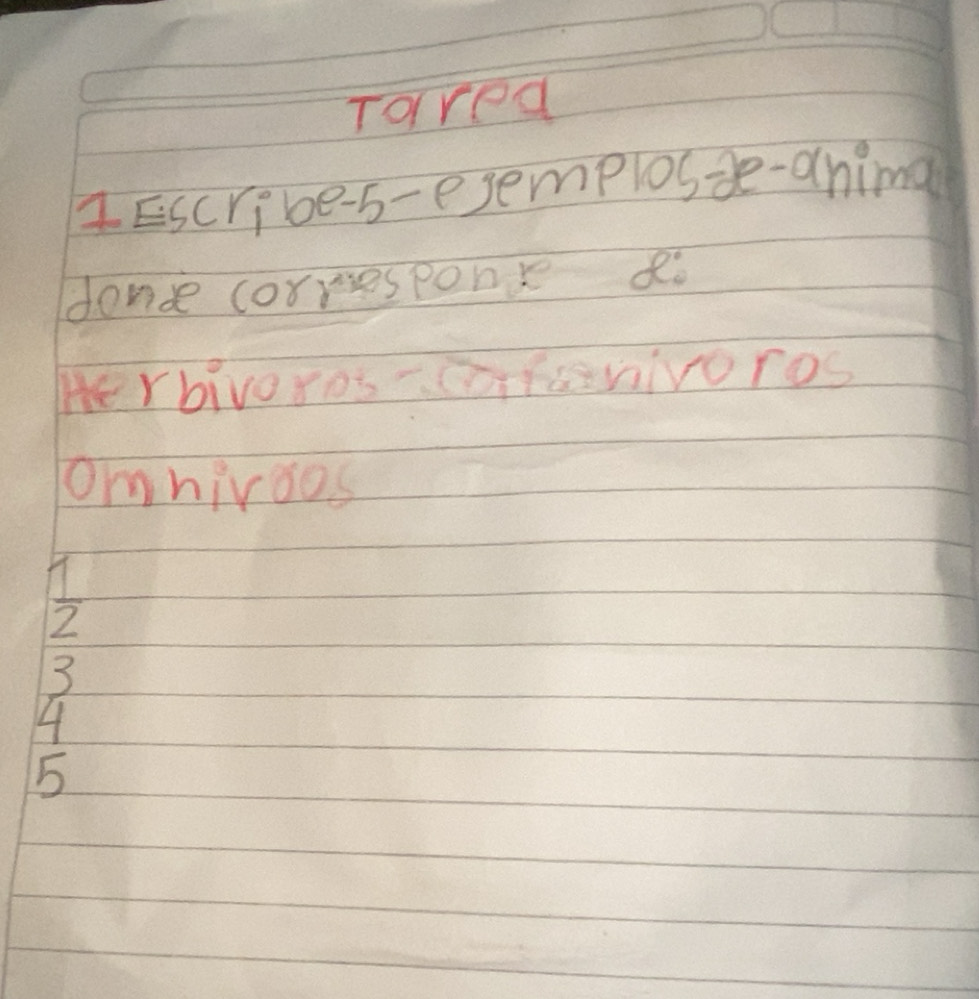 Tarea
1 Escribe-5-ejemplos-de-anima
donde corresponde de:
Herbivoros-carnivoros
Omniroos
1
2
3
4
5